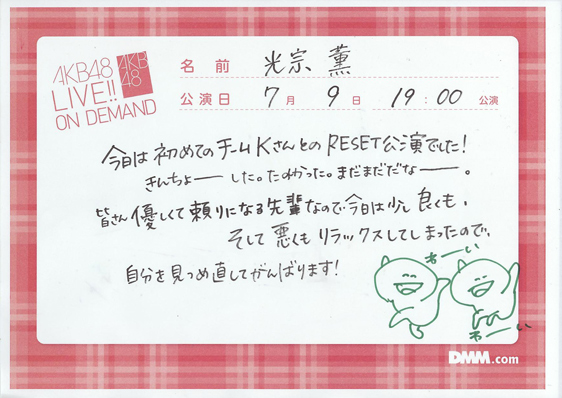 AKB48
LIVE!!
ON DEMAND
AKB
48
名前 光宗 薫
公演日 7月 9日 19:00 公演
今日は初めてのチームKさんとのRESET公演でした!
きんちょーーした。たのしかった。まだまだだなーー。
皆さん優しくて頼りになる先輩なので今日は少し良くも、
そして悪くもリラックスしてしまったので、
自分を見つめ直してがんばります!
わーい
わーい
DMM.com